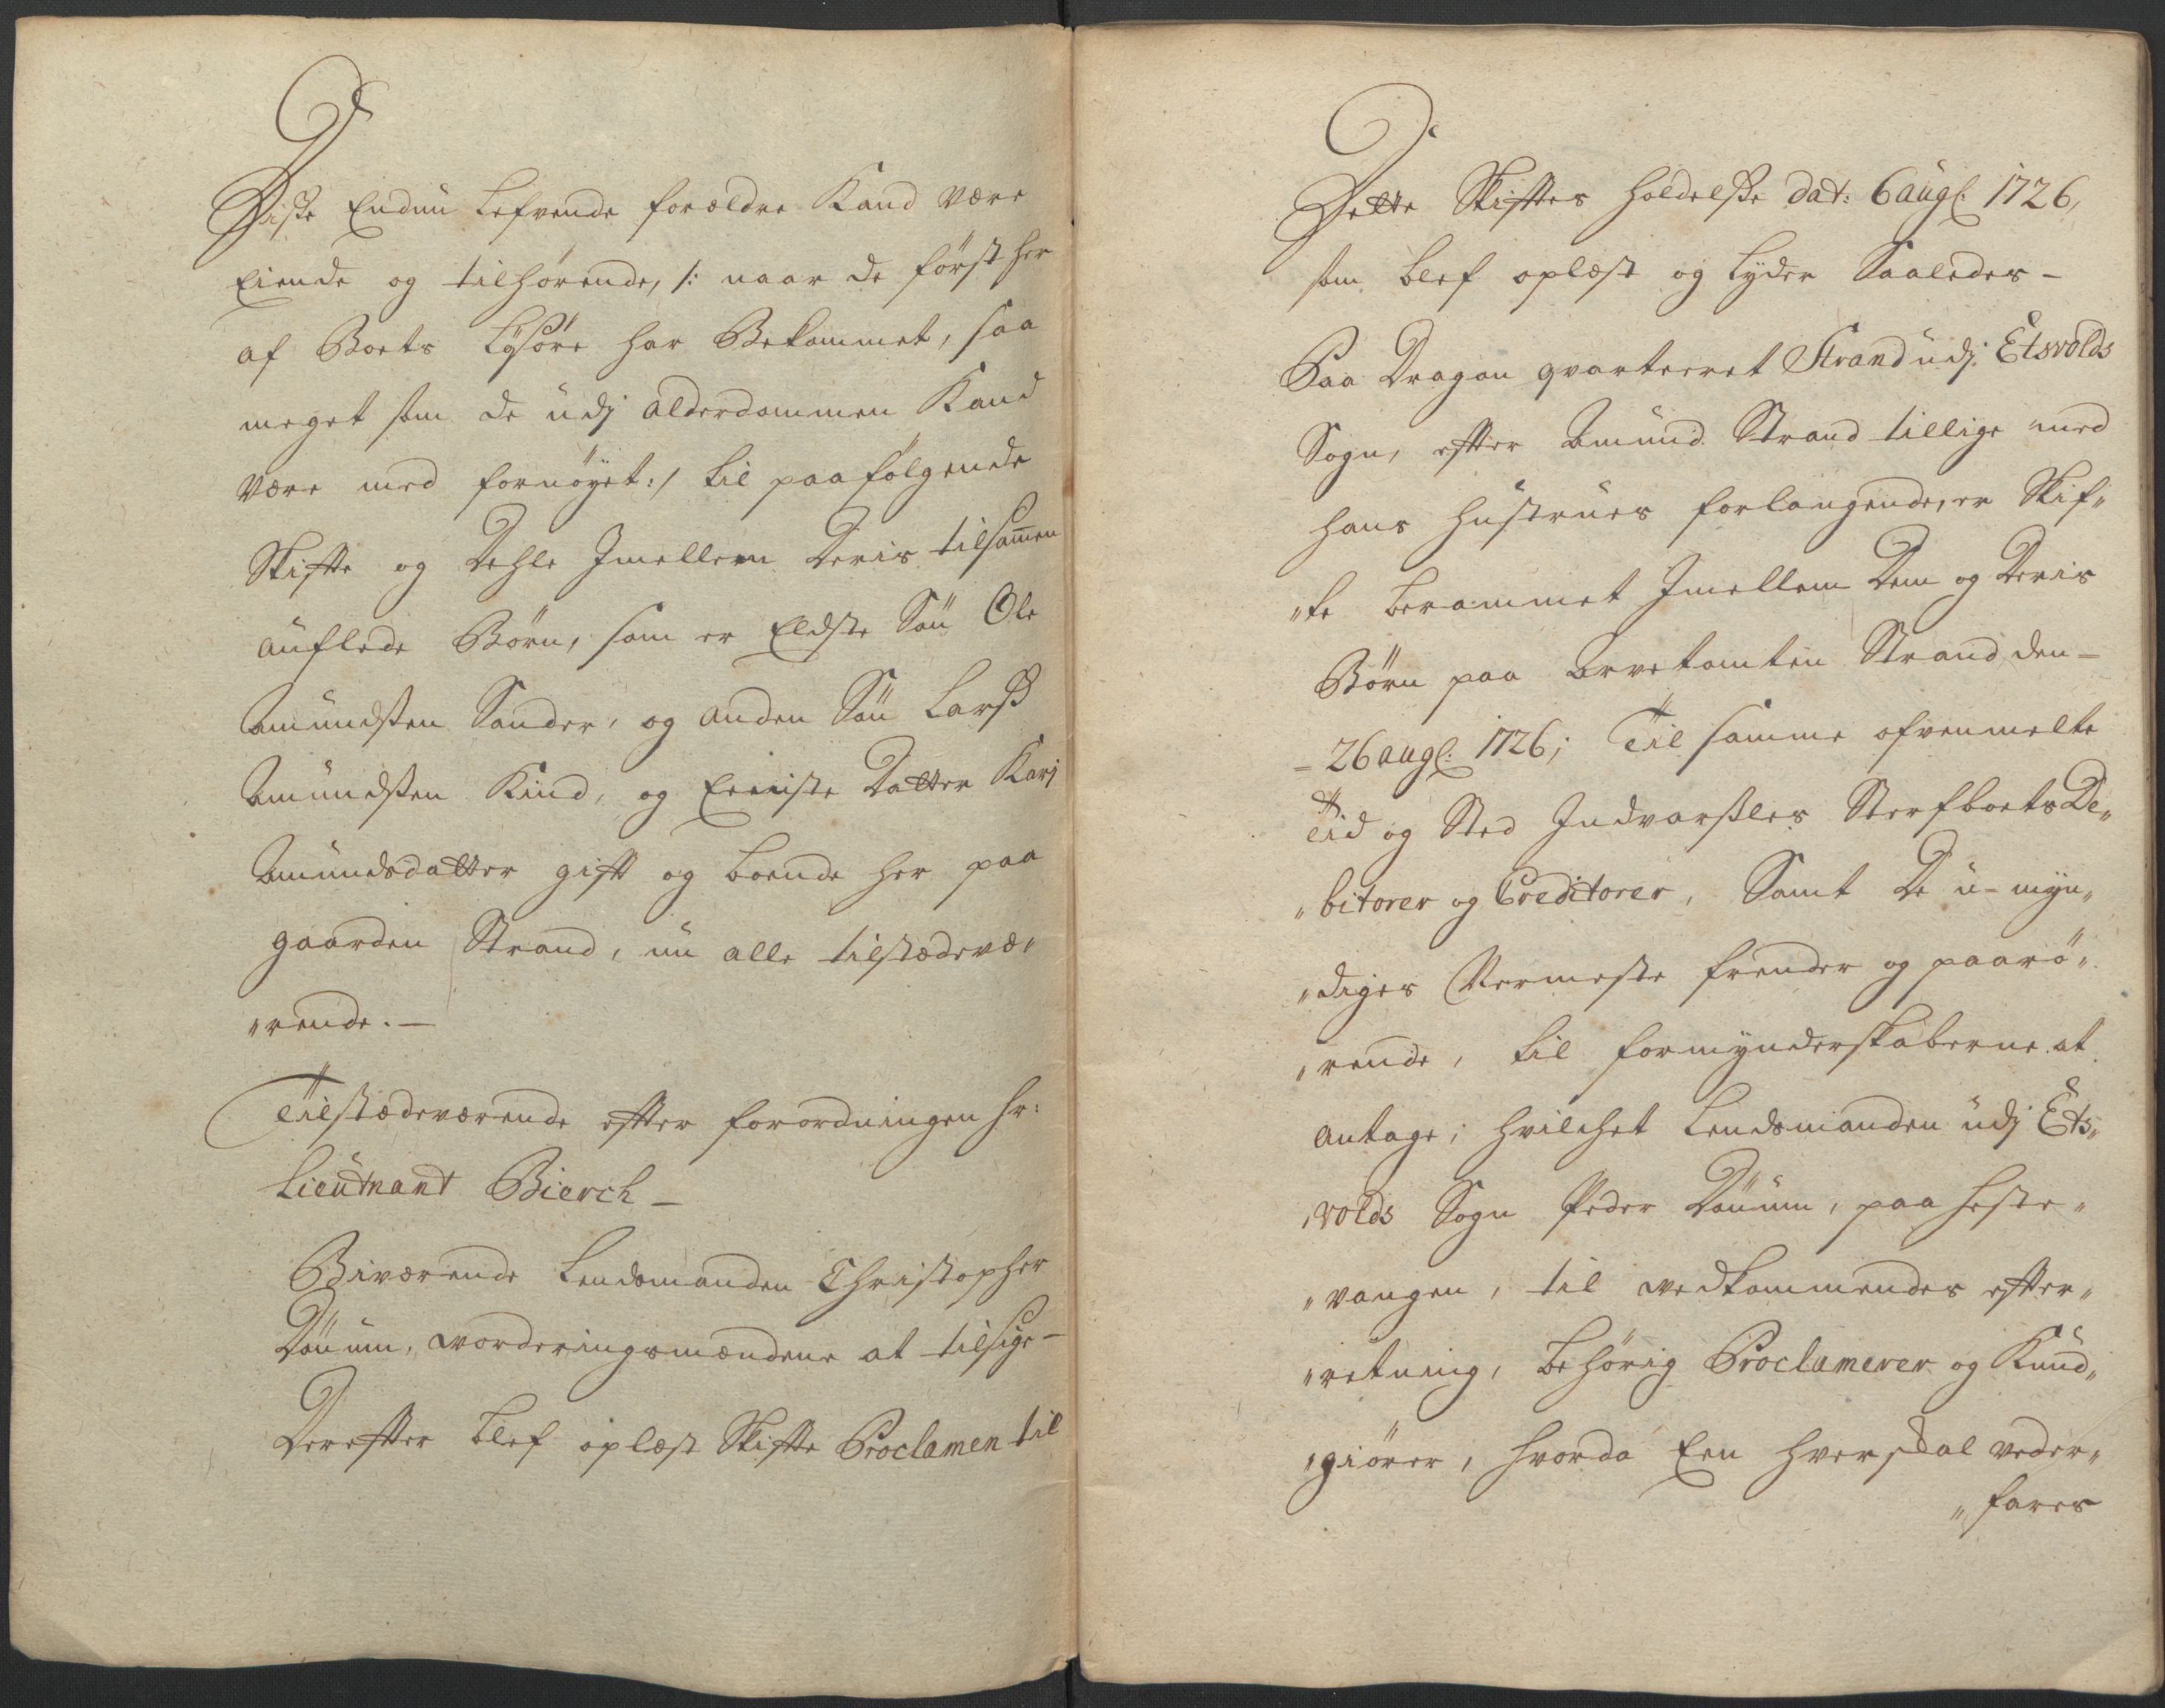 Disse Endnu Lefvende forældre Kand være
Eiende og tilhørende, /: naar de først her
af Boets Løsøre har Bekommet, saa
meget som de udj alderdommen Kand
være med fornøyet :/ til paafølgende
Skifte og Dehle Imellem Deris tilsam̄en
auflede Børn, som er Eldste Søn Ole
Amundsen Sander, og anden Søn Larss
Amundsen Kind, og Eeniste Datter Karj
Amundsdatter gift og boende her paa
gaarden Strand, nu alle tilstædevæ„
„rende. —
Tilstædeværende efter forordningen hr:
Lieutnant Bierch —
Biværende Lendsmanden Christopher
Døuum, worderingsmændene at tilsige —
Derefter blef oplæst Skifte Proclamen til
Dette Skiftes holdelsse dat: 6 aug: 1726,
som blef oplæst og lyder Saaledes —
Paa Dragon qvarteeret Strand udj Etsvolds
Sogn, efter Amund Strand tillige med
hans hustrues forlangende, er Skif„
„te berammet Imellem Dem og Deris
Børn paa Arvetomten Strand den —
= 26 aug: 1726; Til samme ofvenmelte
Tid og Sted Indvarssles Sterfboets De„
„bitorer og Creditorer, Samt De u-myn„
„diges Nermeste frender og paarø„
„rende, til formynderskaberne at
antage; hvilchet Lendsmanden udj Ets„
„volds Sogn Peder Døuum, paa Heste„
„vangen, til vedkommendes efter„
„retning, behørig Proclamerer og Kund„
„giører, hvorda Een hver skal veder„
„fares